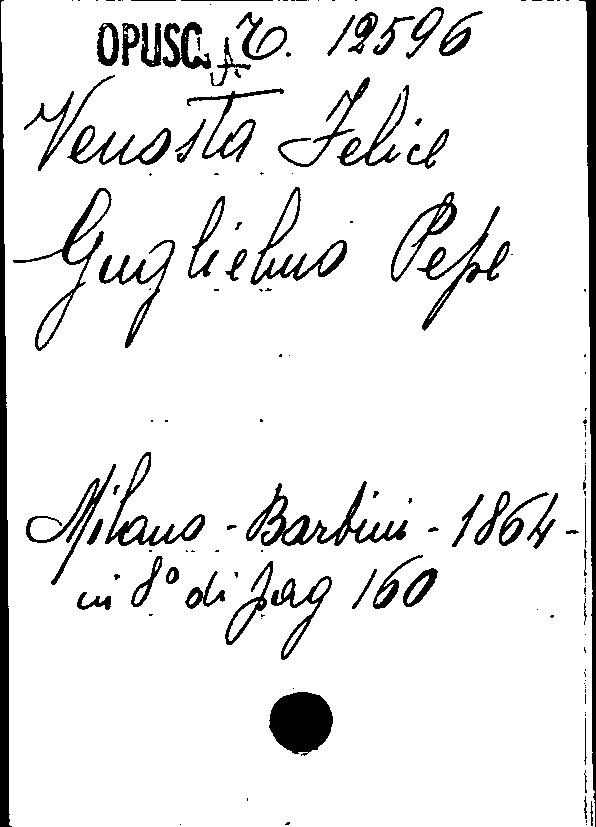 OPUSC. A 12596
Venosta Felice
Guglielmo Pepe
Milano - Barbini - 1864 -
in 8° di pag 160